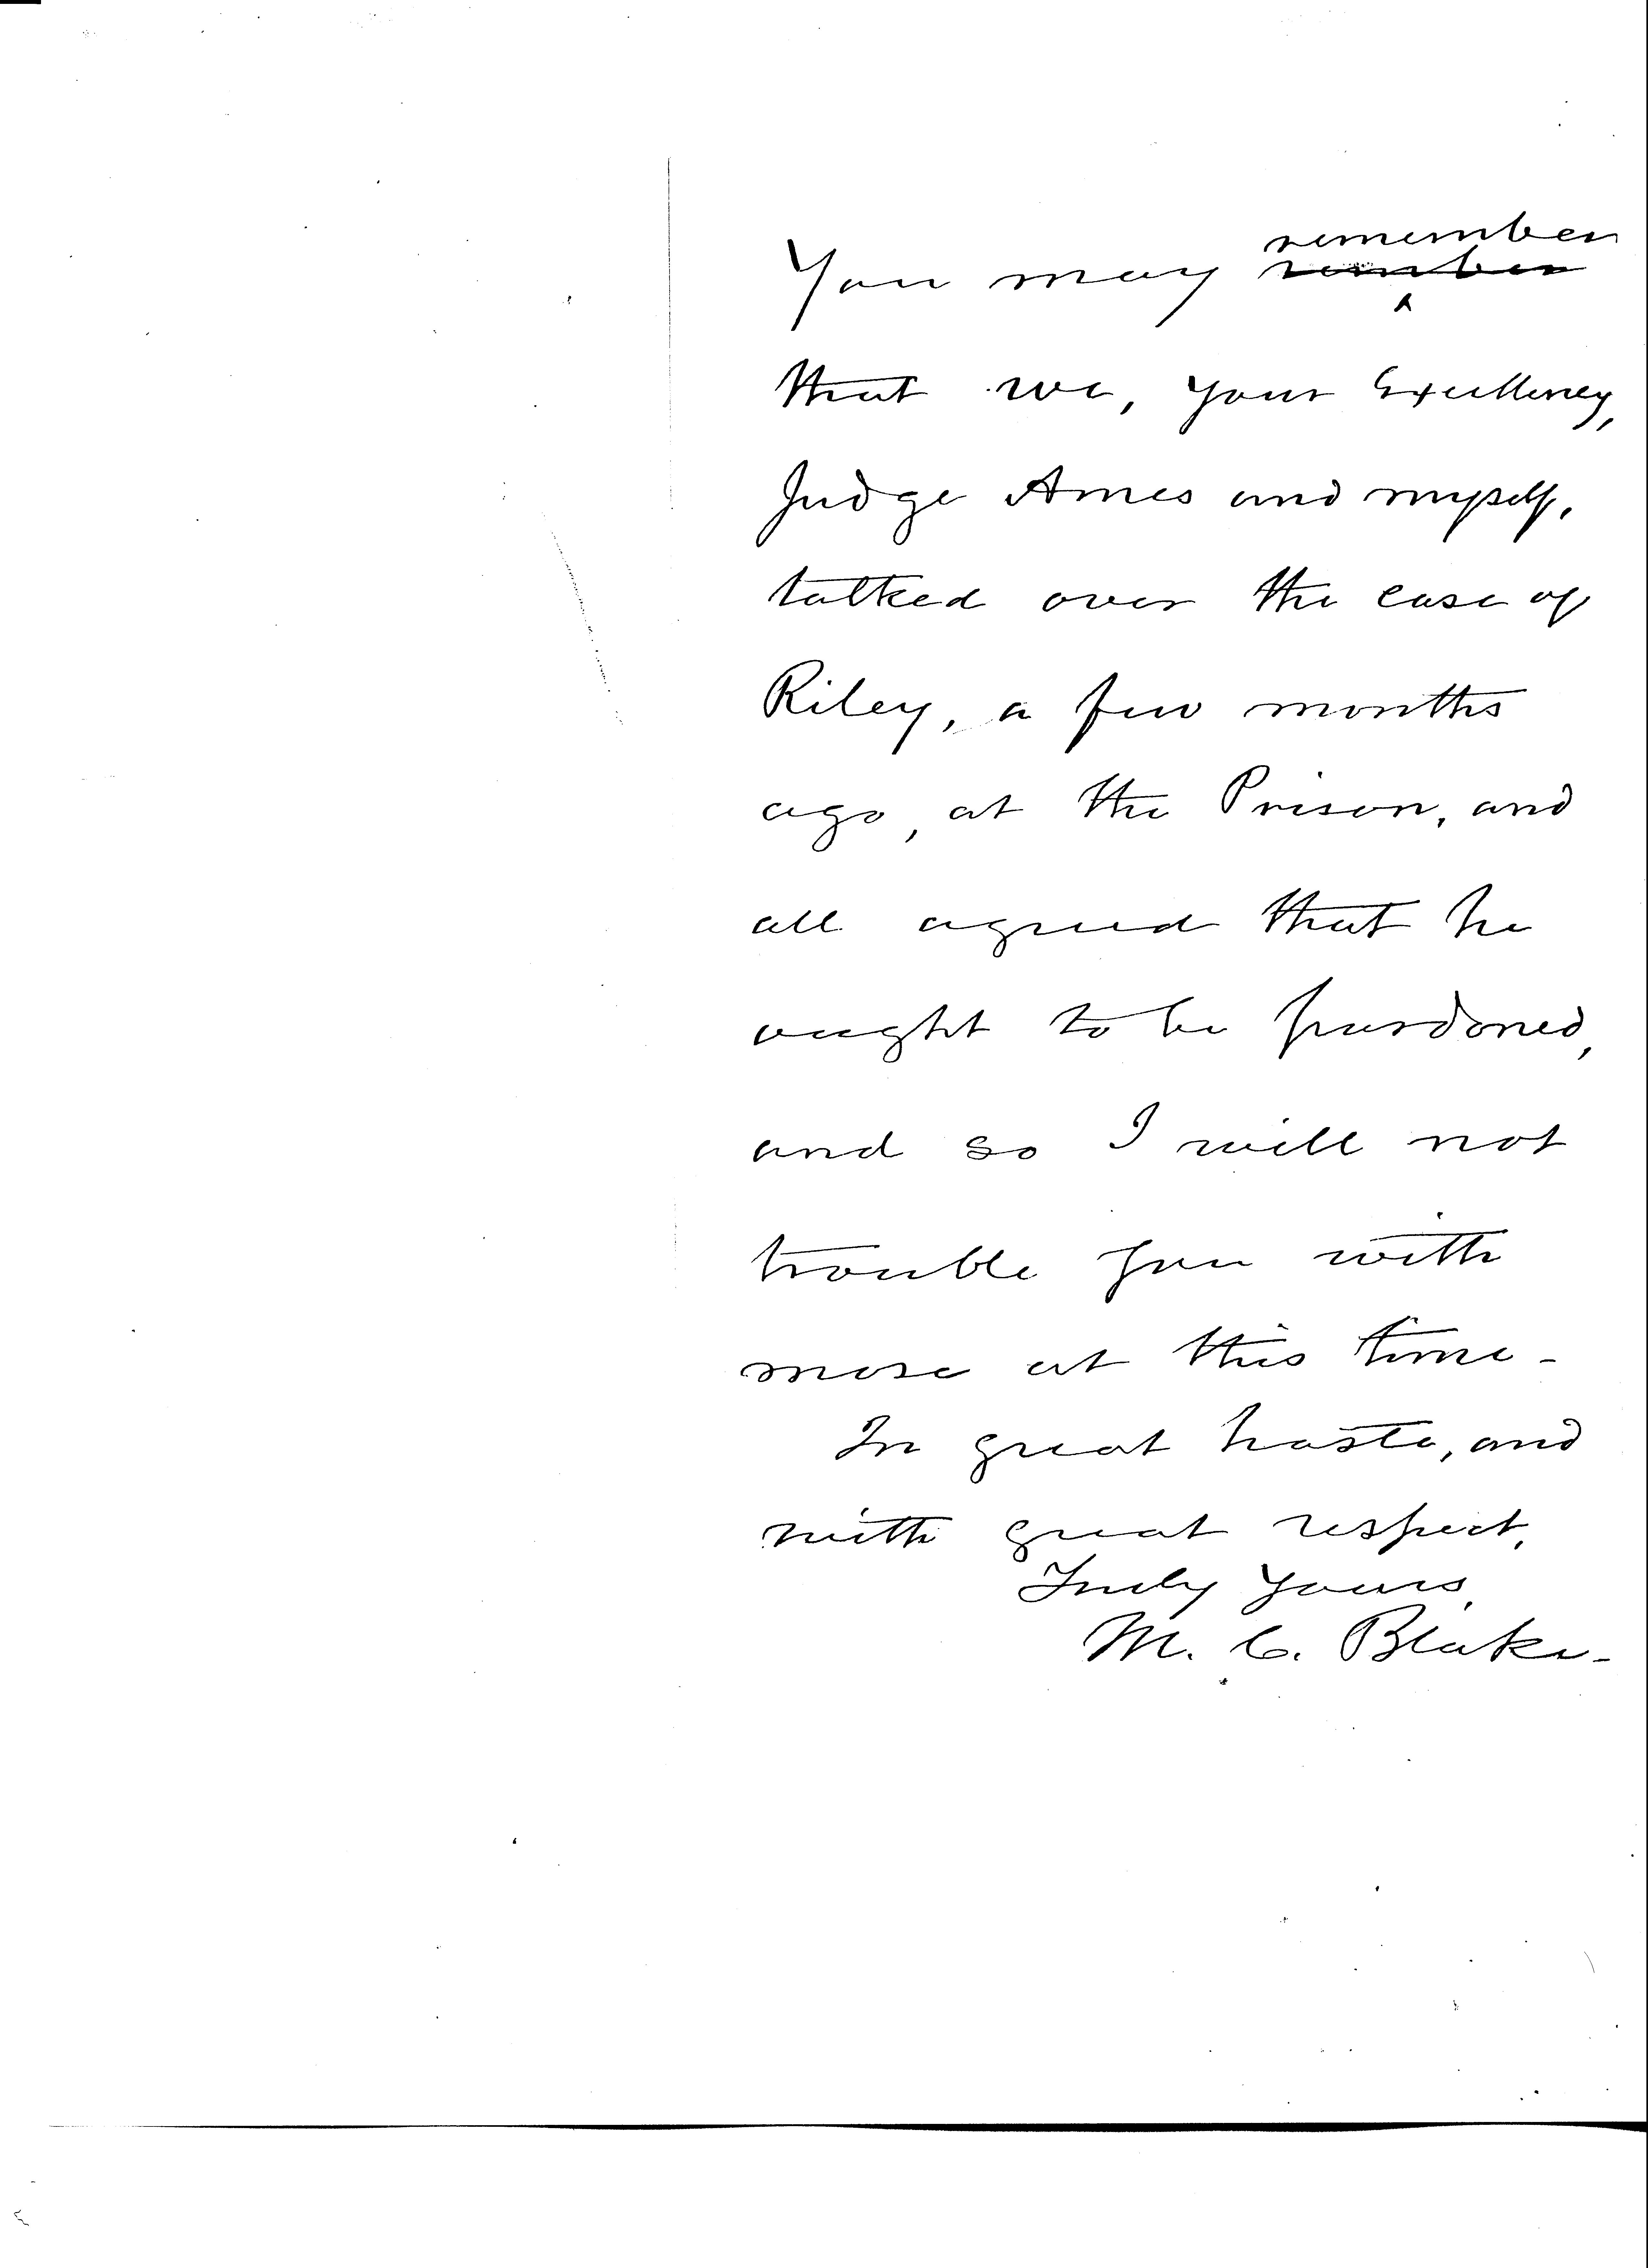 You may remember
rember
that we, your Excellency,
Judge Ames and myself,
talked over the case of
Riley, a few months
ago, at the Prison, and
all agreed that he
ought to be pardoned,
and so I will not
trouble you with
more at this time -
In great haste, and
with great respect,
Truly yours,
M. C. Blake -